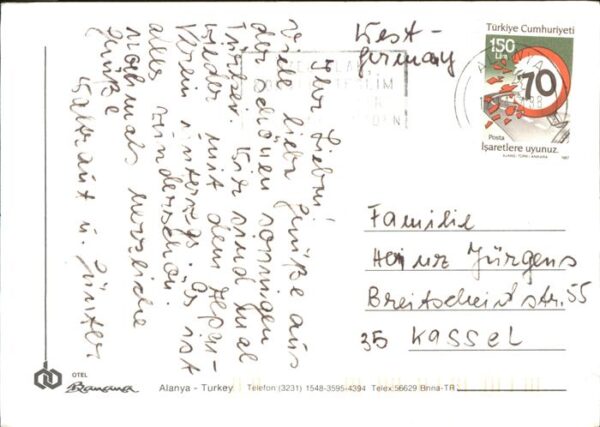 Ihr Lieben!
viele liebe Grüße aus
der schönen sonnigen
Türkei. Wir sind mal
wieder mit dem Kepan-
Verein unterwegs. Es ist
alles wunderschön.
nochmals herzliche
Grüße
u. Günter
West-
germany
Türkiye Cumhuriyeti
150
Lira
70
Posta
İşaretlere uyunuz.
1987
Familie
Heinz Jürgens
Breitscheidstr. 55
35 Kassel
OTEL
Banana
Alanya - Turkey. Telefon: (3231) 1548-3595-4394 Telex: 56629 Bnna-TR